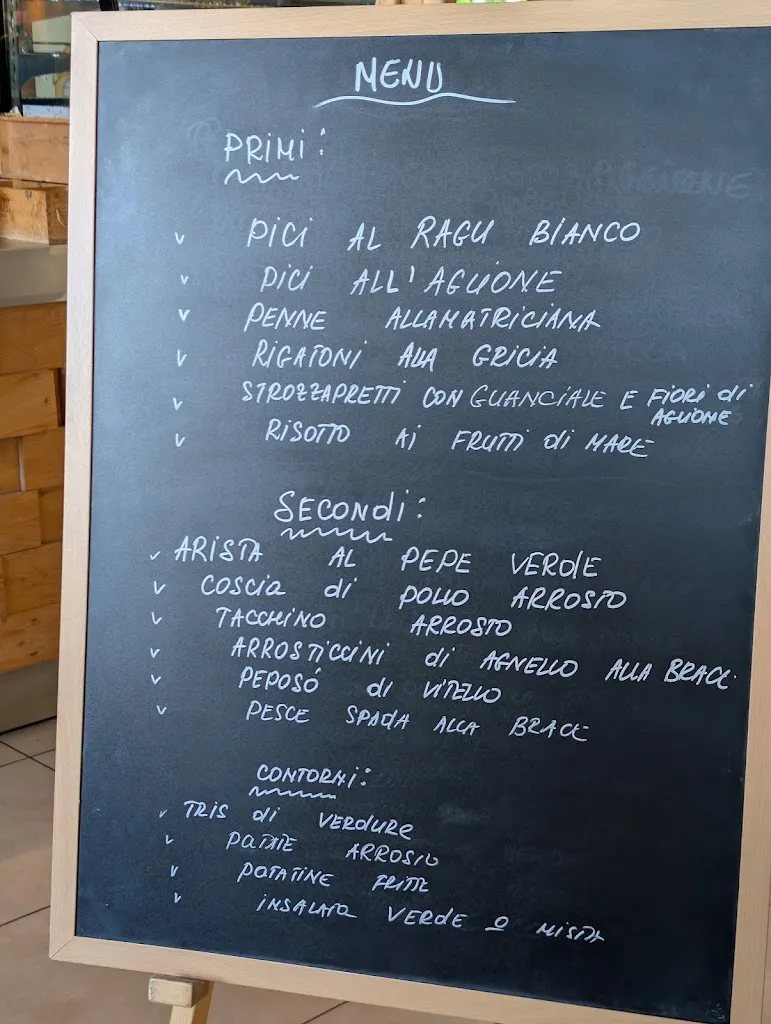 MENU
PRIMI:
v PICI AL RAGU BIANCO
v PICI ALL'AGLIONE
v PENNE ALLAMATRICIANA
v RIGATONI ALLA GRICIA
v STROZZAPRETTI CON GUANCIALE E FIORI di
AGLIONE
v RISOTTO Ai FRUTTI di MARE
SECONdi:
v ARISTA AL PEPE VERdE
v COSCIa di POLLO ARROSTO
v TACCHINO ARROSTO
v ARROSTICCINI di AGNELLO ALLA BRACE
v PEPOSÓ di VITELLO
v PESCE SPADA ALLA BRACE
CONTORNI:
v TRIS di VERDURE
v PATATE ARROSTO
v PATATINE FRITTE
v INSALATA VERdE O MISTA